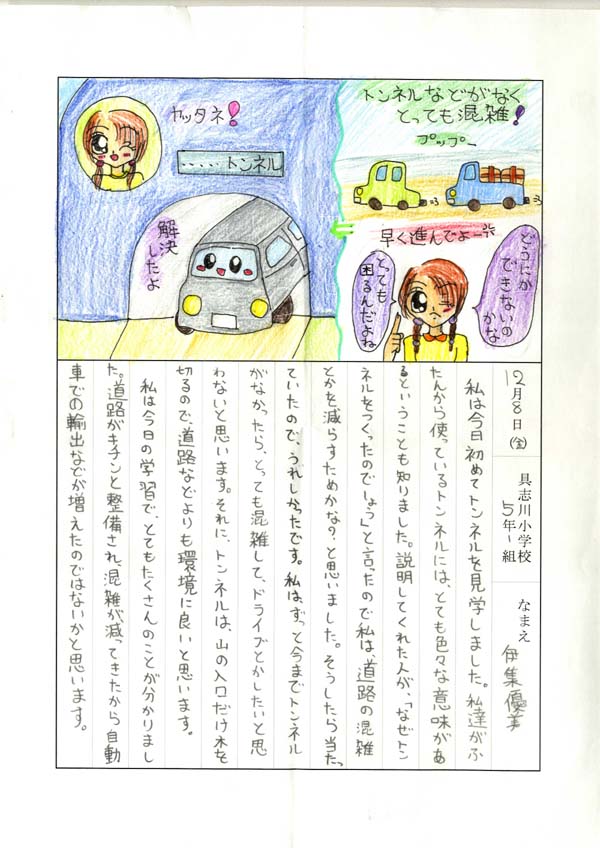 トンネルなどがなく
とっても混雑!
プップー
早く進んでよー
どうにか
できないの
かな
とっても
困るんだよね
ヤッタネ!
・・・・・トンネル
解決
したよ
12月8日(金)
具志川小学校
5年1組
なまえ
伊集優美
私は今日初めてトンネルを見学しました。私達がふ
だんから使っているトンネルには、とても色々な意味があ
るということも知りました。説明してくれた人が、「なぜトン
ネルをつくったのでしょう」と言ったので私は、道路の混雑
とかを減らすためかな?と思いました。そうしたら当たっ
ていたので、うれしかったです。私は、ずっと今までトンネル
がなかったら、とっても混雑して、ドライブとかしたいと思
わないと思います。それに、トンネルは、山の入口だけ木を
切るので、道路などよりも環境に良いと思います。
私は今日の学習で、とてもたくさんのことが分かりまし
た。道路がキチンと整備され、混雑が減ってきたから自動
車での輸出などが増えたのではないかと思います。